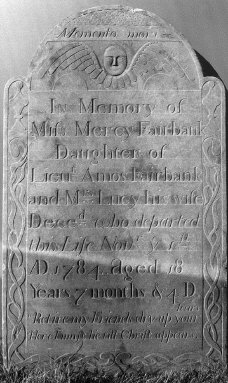 Memento mori
In Memory of
Miſs Mercy Fairbank
Daughter of
Lieut Amos Fairbank
and Mrs Lucy his wife
Deced who departed
this Life Novr
AD 1784. aged 18
Years 7 months & 4 D
Return my Friends dry up your
tears
Here I must lie till Chriſt appears